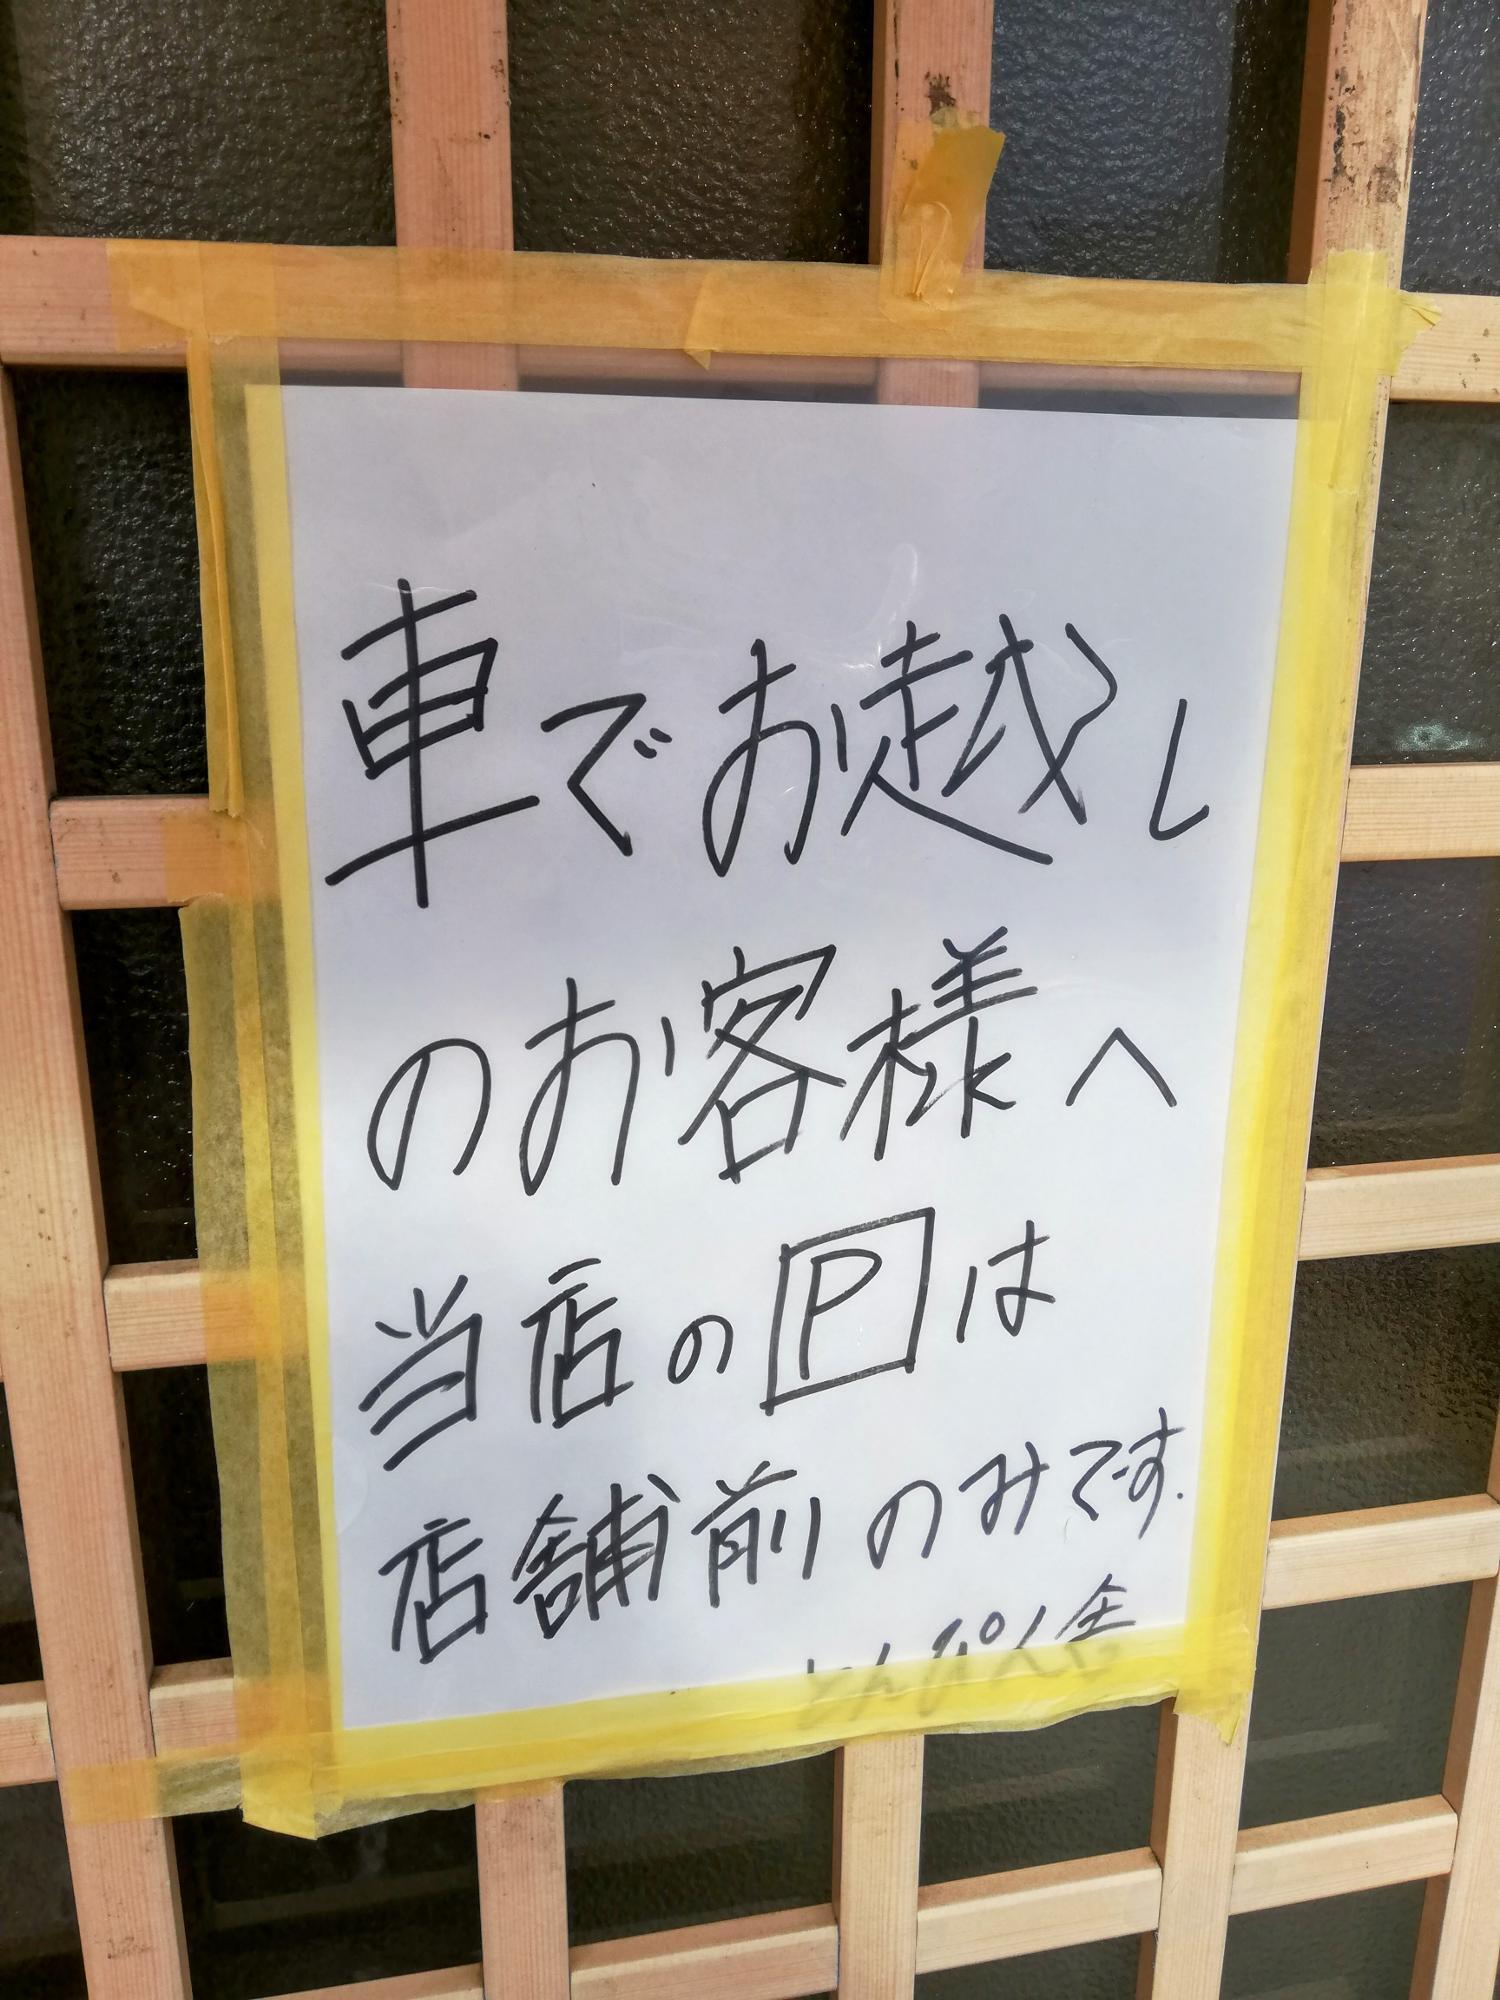 車でお越し
のお客様へ
当店のPは
店舗前のみです.
とんぴん舎